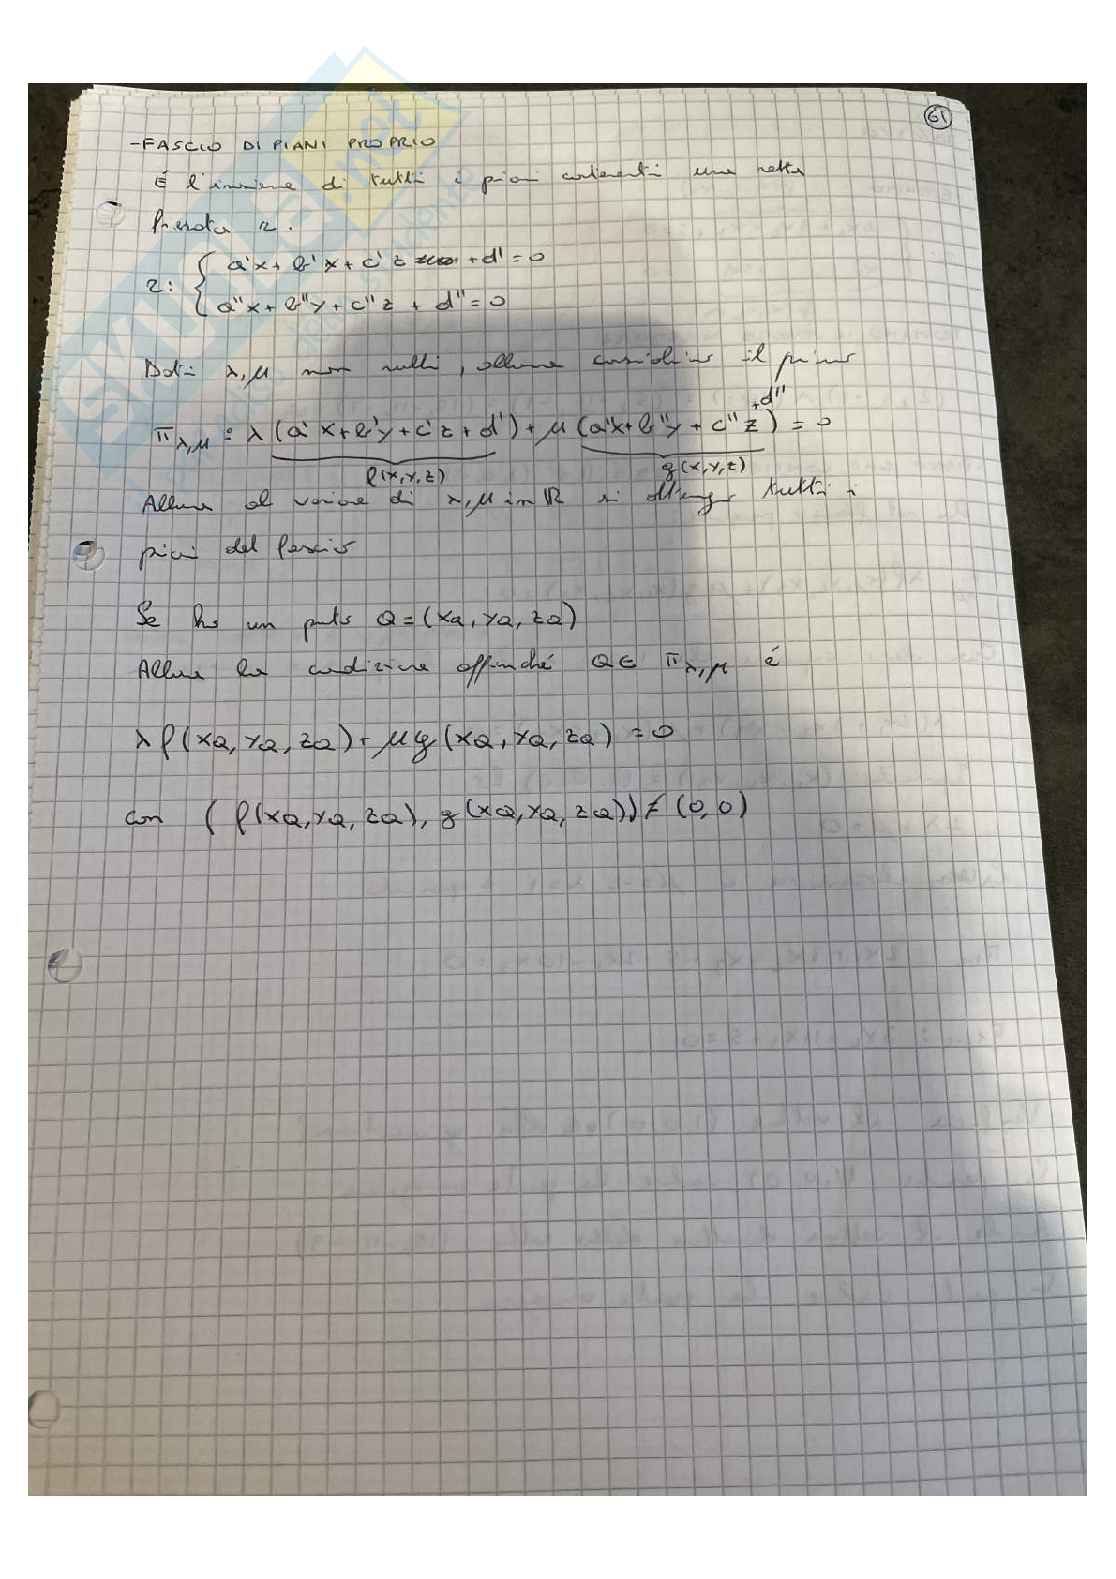 61
-FASCIO DI PIANI PROPRIO
É l'insieme di tutti i piani contenenti una retta
Presata r.
r: { a'x + b'x + c'z + d' = 0
a''x + b''y + c''z + d'' = 0
Dati λ, μ non nulli, allora consideriamo il piano
π λ,μ : λ (a'x + b'y + c'z + d') + μ (a''x + b''y + c''z + d'') = 0
f(x,y,z) g(x,y,z)
Allora al variare di λ, μ in ℝ si ottengono tutti i
piani del fascio
Se ho un punto Q = (xQ, yQ, zQ)
Allora la condizione affinché Q ∈ π λ,μ é
λ f(xQ, yQ, zQ) + μ g(xQ, yQ, zQ) = 0
con (f(xQ, yQ, zQ), g(xQ, yQ, zQ)) ≠ (0,0)